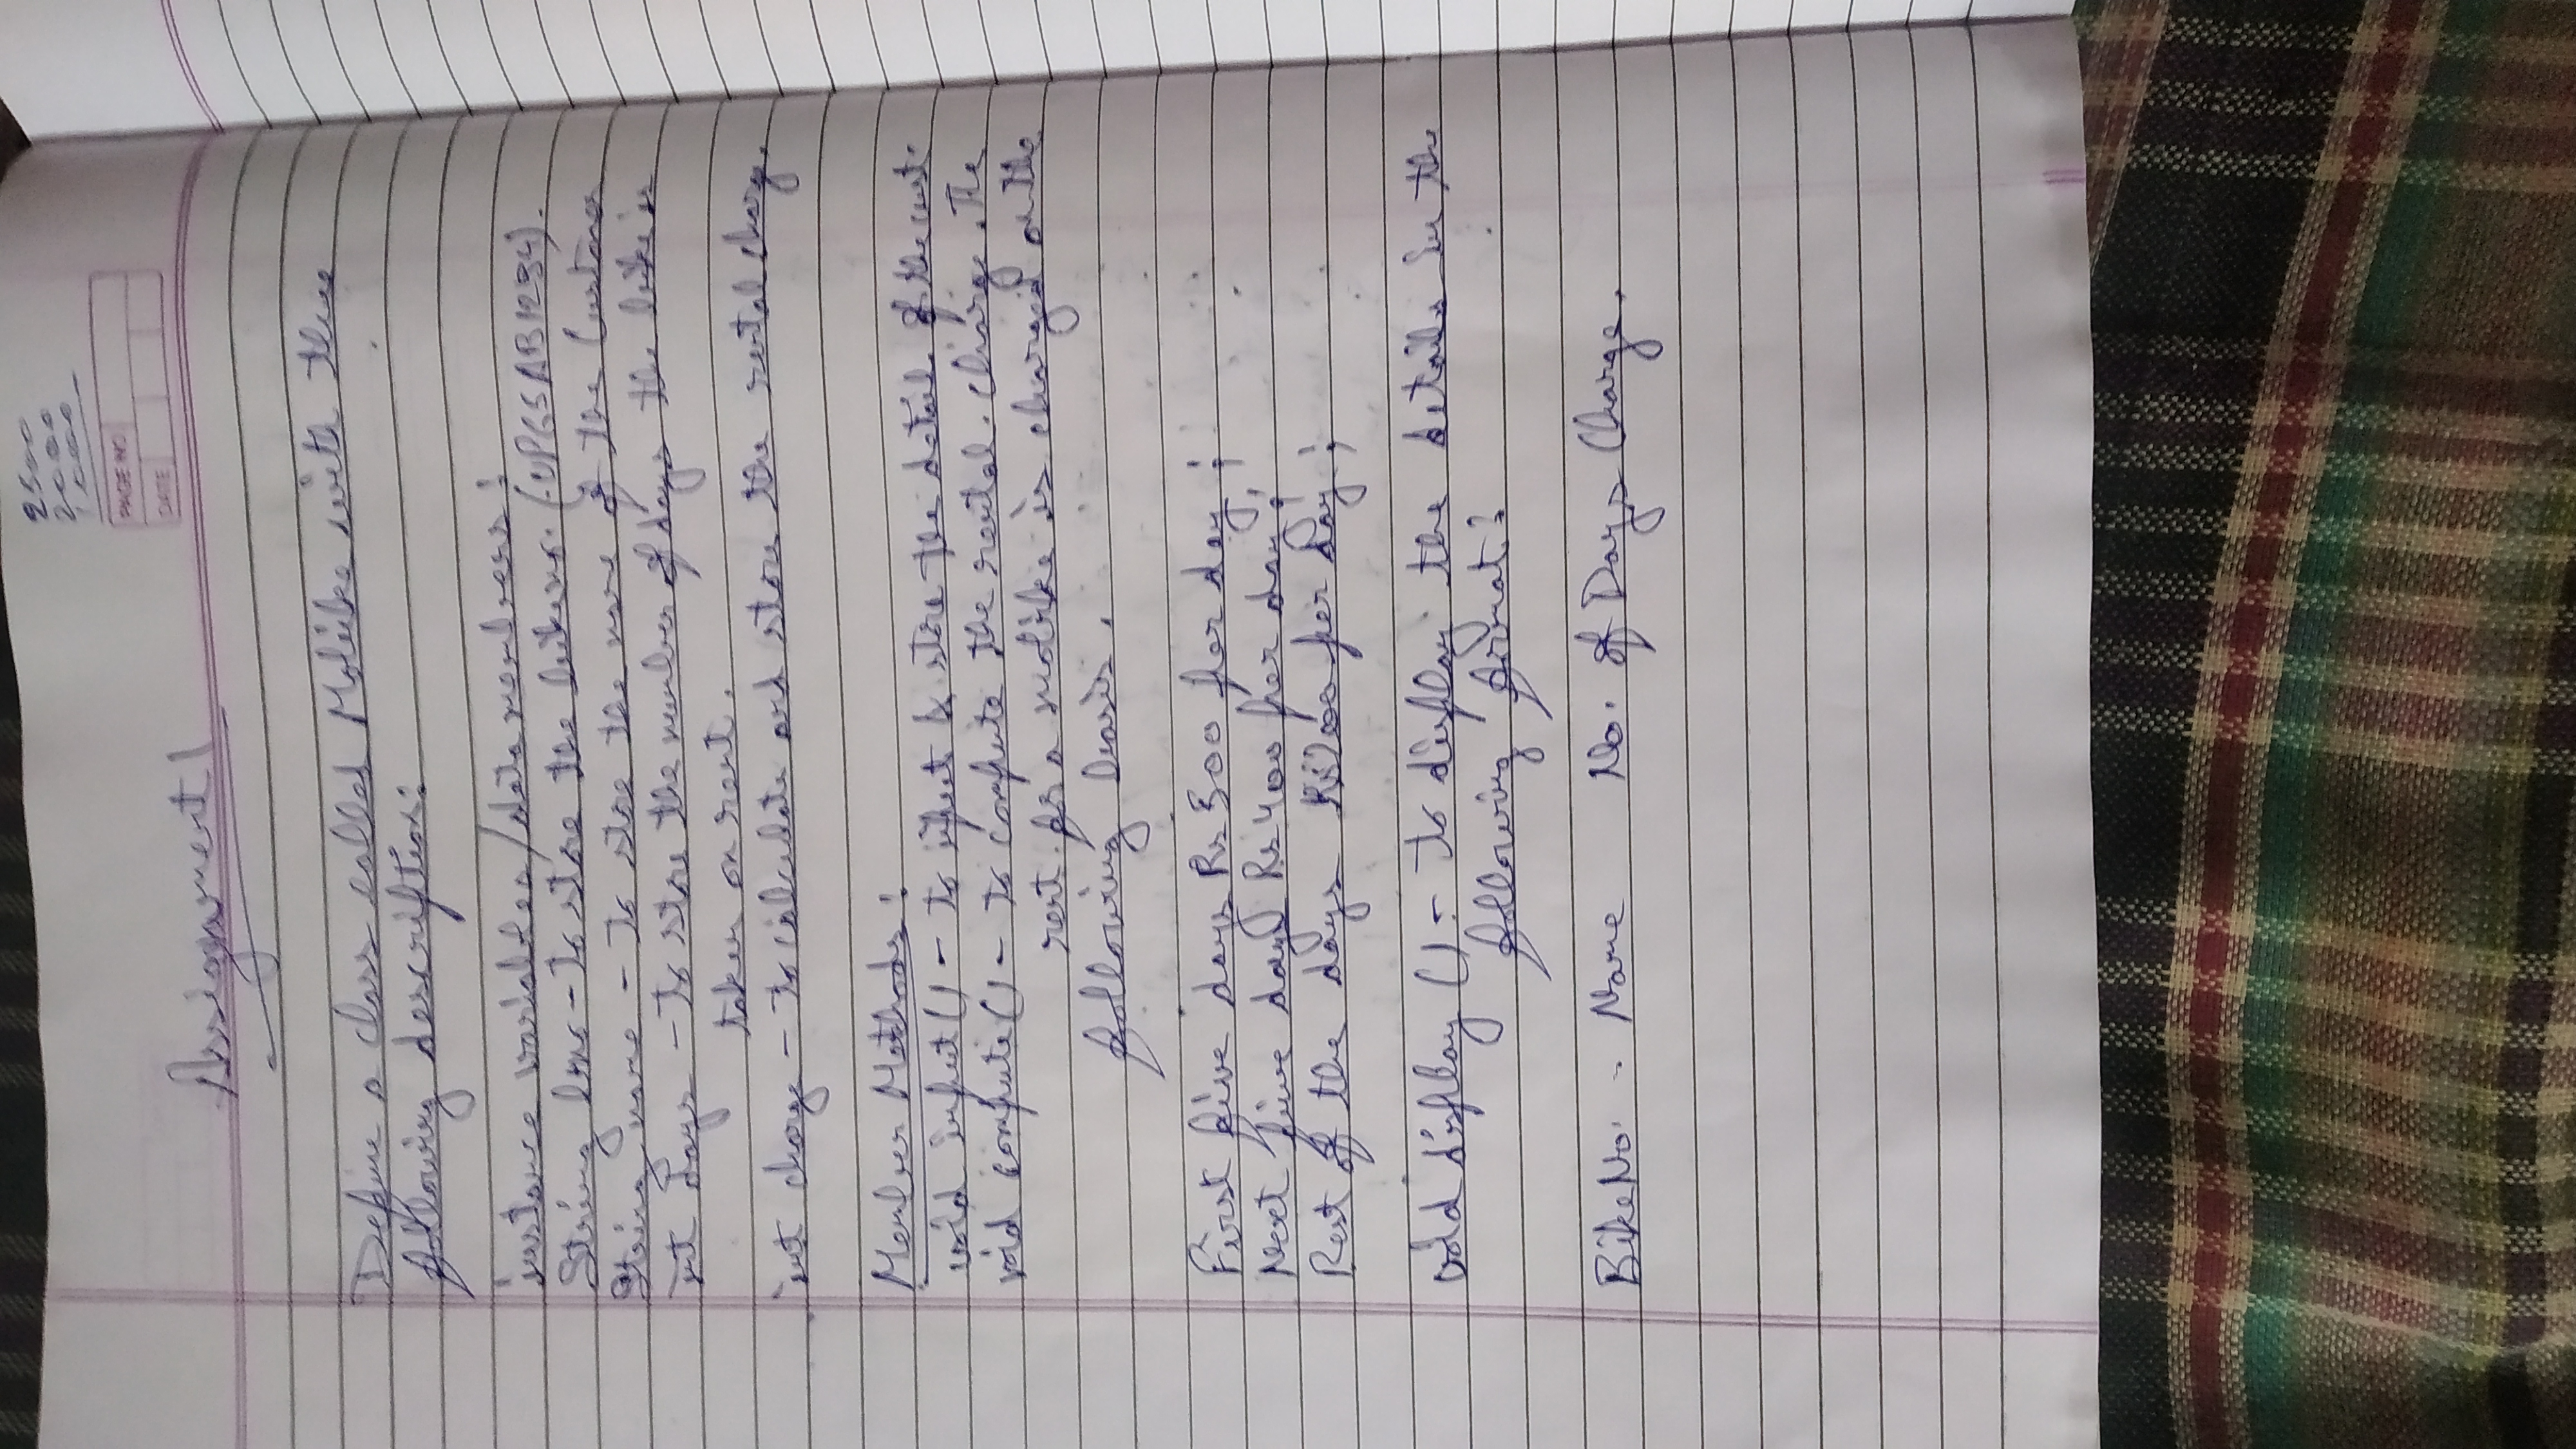 2500
2000
1000
PAGE NO
DATE
Assignment 1
Define a class called Mobike with three
following description:
instance variables/data members:
String bno - to store the bike no. (UP65AB1234).
String name - to store the name of the Customer
int days - to store the number of days the bike is
taken on rent.
int charge - to calculate and store the rental charge.
Member Methods:
void input() - to input & store the detail of the cust.
void compute() - to compute the rental charge. The
rent for a mobike is charged on the
following basis.
First five days Rs 500 per day;
Next five days Rs 400 per day;
Rest of the days Rs 200 per day;
void display() - to display the details in the
following format:
BikeNo. - Name No. of Days Charge.